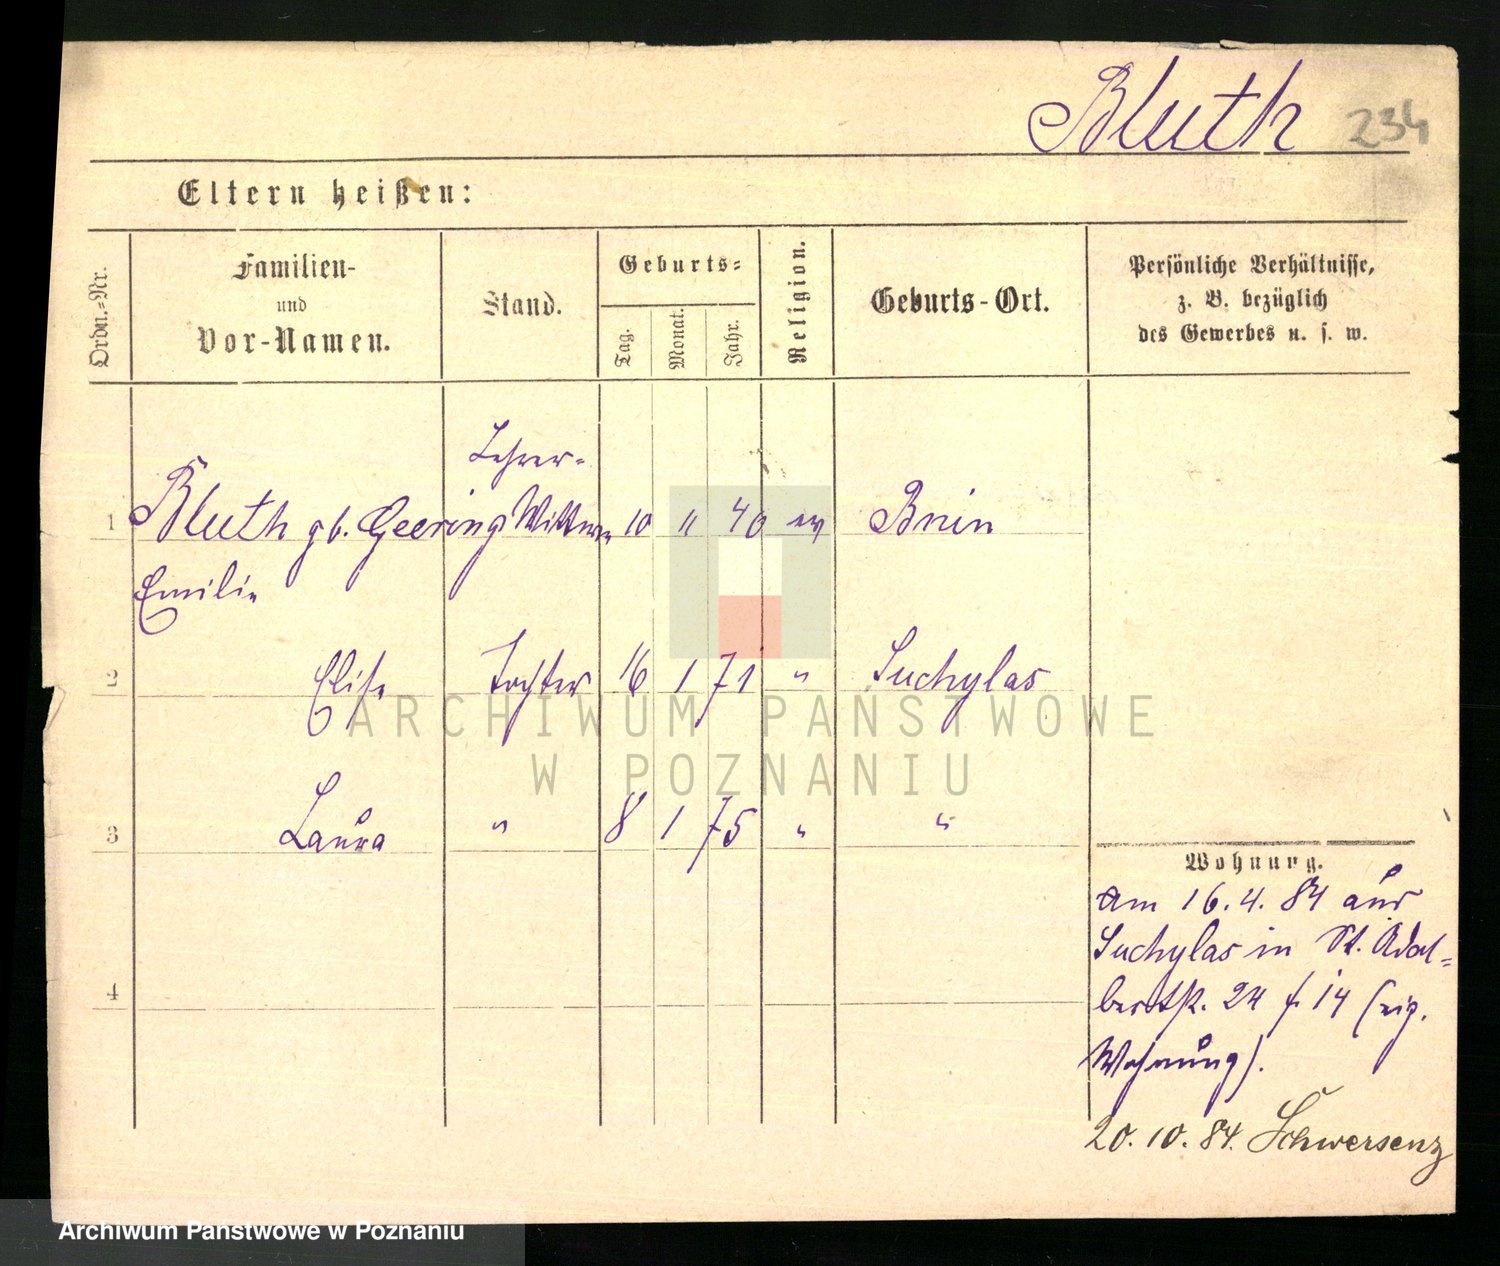 Bluth 234
Eltern heißen:
Ordn.-Nr.
Familien-
und
Vor-Namen.
Stand.
Geburts-
Tag.
Monat.
Jahr.
Religion.
Geburts-Ort.
Persönliche Verhältnisse,
z. B. bezüglich
des Gewerbes u. s. w.
Lehrer-
1 Bluth gb. Geering Wittwe 10 11 40 ev Bnin
Emilie
2 Elise Tochter 16 1 71 " Suchylas
ARCHIWUM PAŃSTWOWE
W POZNANIU
3 Laura " 8 1 75 " "
4
Wohnung.
am 16.4.84 aus
Suchylas in St. Adal-
bertstr. 24 f. 14 (eig.
Wohnung).
20.10.84. Schwersenz
Archiwum Państwowe w Poznaniu